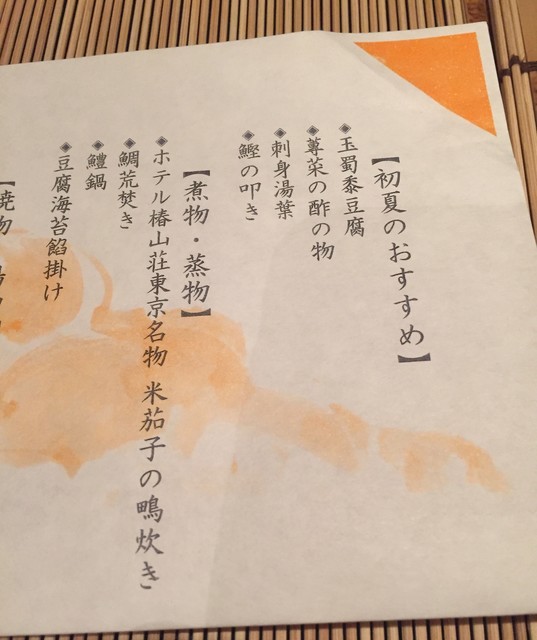 【初夏のおすすめ】
◈玉蜀黍豆腐
◈蓴菜の酢の物
◈刺身湯葉
◈鰹の叩き
【煮物・蒸物】
◈ホテル椿山荘東京名物 米茄子の鴫炊き
◈鯛荒焚き
◈鱧鍋
◈豆腐海苔餡掛け
【焼物